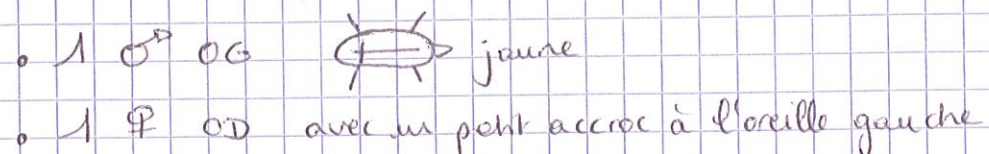 • 1 ♂ OG jaune
• 1 ♀ OD avec un petit accroc à l'oreille gauche